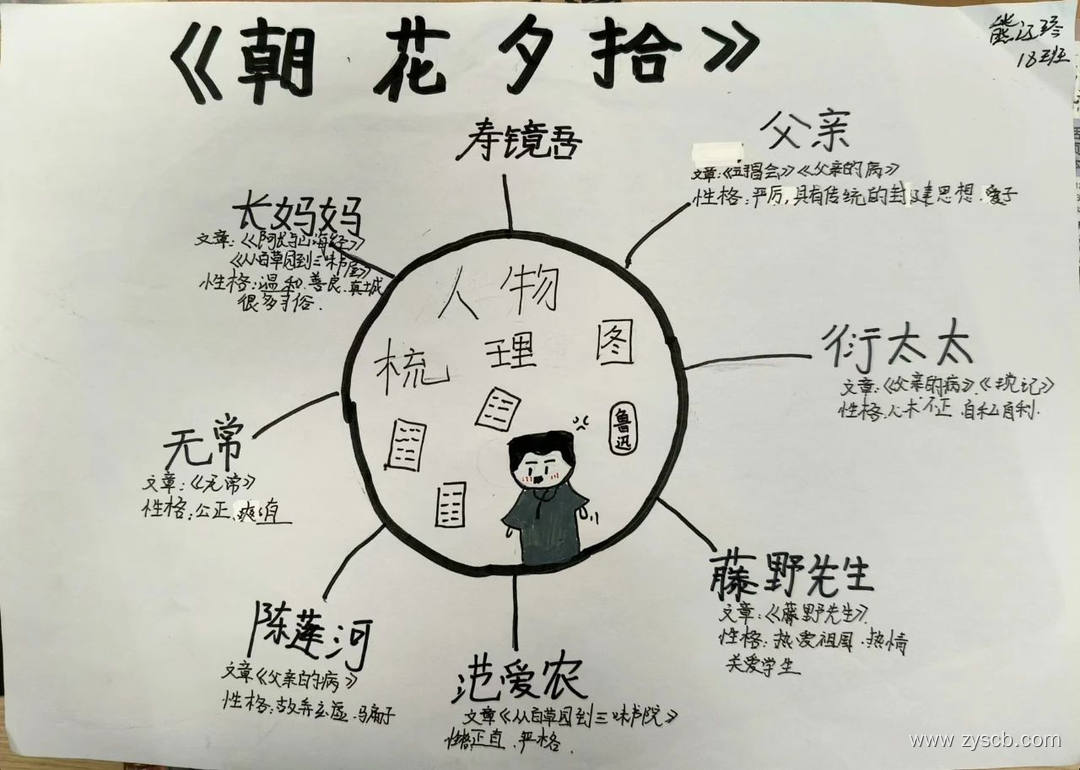 《朝花夕拾》
熊
18班
寿镜吾
父亲
文章:《五猖会》《父亲的病》
性格:严厉,具有传统的封建思想.爱子
长妈妈
文章:《阿长与山海经》
《从百草园到三味书屋》
性格:温和.善良.真诚
很多习俗.
人物
梳理图
鲁迅
衍太太
文章:《父亲的病》《琐记》
性格.心术不正.自私自利.
无常
文章:《无常》
性格:公正、爽直
藤野先生
文章:《藤野先生》
性格:热爱祖国.热情
关爱学生
陈莲河
文章《父亲的病》
性格:故弄玄虚.骗子
范爱农
文章《从百草园到三味书院》
性格正直.严格.
www.zyscb.com